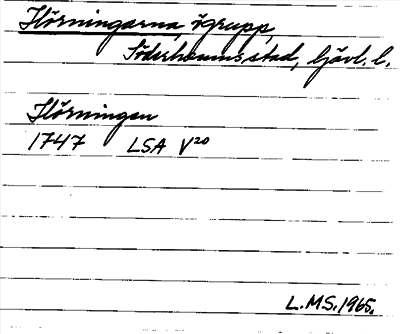 Hörningarna, ögrupp,
Söderhamns stad, Gävl. l.
Hörningen
1747 LSA V20
L.MS.1965.